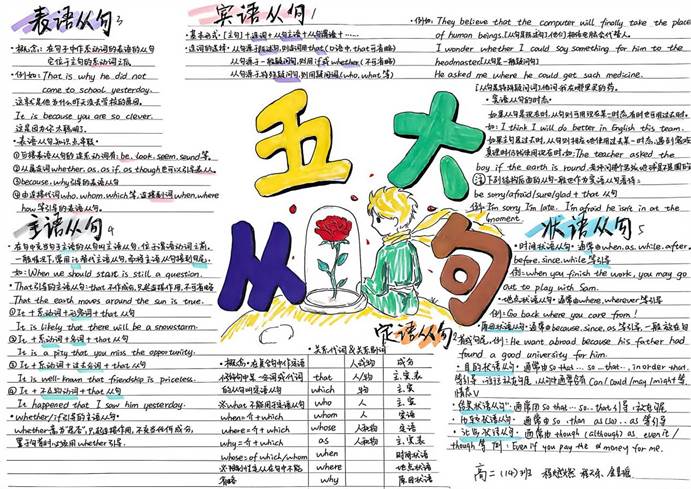 表语从句3
·概念:在句子中作系动词的表语的从句
它位于主句的系动词之后
·例如:That is why he did not
came to school yesterday.
这就是他为什么昨天没去学校的原因。
It is because you are so clever.
这是因为你太聪明了。
·表语从句知识点举额
①可接表语从句的连系动词有: be, look, seem, sound等。
②从属连词whether, as, as if, as though也可以引导表从。
③because, why引导的表语从句
④由连接代词who, whom, which等,连接副词when, where
how等引导的表语从句
主语从句4
·在句中充当句子主语的从句叫主语从句,位于谓语动词之前,
一般情况下,常用it替代主语从句,而将主语从句移到句尾;
如: When we should start is still a question.
·That引导的主语从句:that不作成分,只起连接作用,不可省略
That the earth moves around the sun is true.
①It + 系动词+形容词+that从句
It is likely that there will be a snowstorm.
②It + 系动词+名词+that从句
It is a pity that you miss the opportunity.
③It + 系动词+过去分词+that从句
It is well-known that friendship is priceless.
④It + 不及物动词+that从句
It happened that I saw him yesterday.
·whether/if引导的主语从句
whether意为"是否",只起连接作用,不充当任何成分,
置于句首时必须用whether引导。
宾语从句1
·基本形式:[主句]+连词+从句主语+从句谓语+……
·连词的选择:从句源于陈述句,则连词用that(口语中,that可省略)
从句源于一般疑问句,则用if或whether(不可省略)
从句源于特殊疑问句,则用疑问词(who, what等)
·例如: They believe that the computer will finally take the place
of human beings.
I wonder whether I could say something for him to the
headmaster.[从句是一般疑问句]
He asked me where he could get such medicine.
·宾语从句的时态
如: I think I will do better in English this team.
The teacher asked the
boy if the earth is round.
be sorry/afraid/sure/glad + that 从句
例: I'm sorry I'm late. I'm afraid he isn't in at the
moment.
五大
从句
定语从句2
·关系代词&关系副词
人或物 成分
that 人/物 主,宾,表
which 物 主,宾
who 人 主,宾
whom 人 宾语
whose 人和物 定语
as 人和物 主,宾,表
when 时间状语
where 地点状语
why 原因状语
·概念:在复合句中修饰
的从句叫定语从句
※what不能用于定语从句
when=介+which
where=介+which
why=介+which
whose=of which/whom
省略
状语从句5
·时间状语从句:通常由when, as, while, after,
before, since, while等引导
例: when you finish the work, you may go
out to play with Sam.
·地点状语从句:通常由where, wherever等引导
例: Go back where you care from!
·原因状语从句:通常由because, since, as等引导,一般放在句
例: He want abroad because his father had
found a good university for him.
·目的状语从句:通常由so that… so… that, in order that.
Can/could/may/might等
·结果状语从句:通常由so that… so… that引导,放句尾
·比较状语从句:通常由so, than as(so)..as等引导
·让步状语从句:通常由though (although) as, even if/
though等 例: Even if you pay the money for me.
高二(14)班